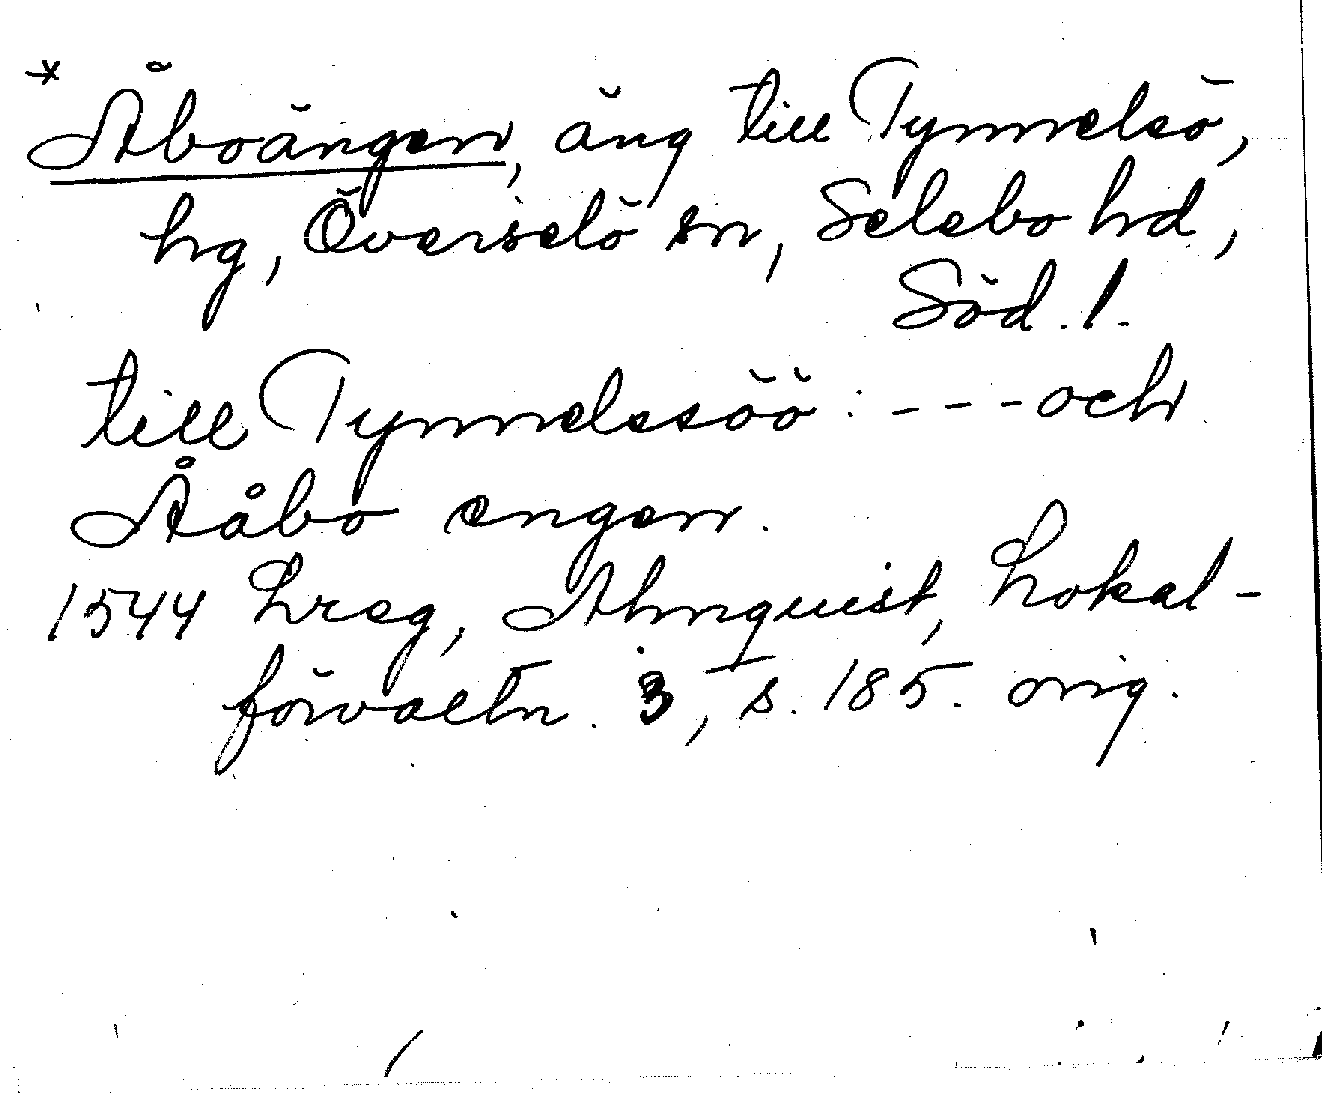 * Åboängen, äng till Tynnelsö,
hg, Överselö sn, Selebo hd,
Söd. l.
till Tynnelssöö: --- och
Ååbo engen.
1544 Lreg, Almquist, Lokal-
förvaltn. 3, s. 185. orig.